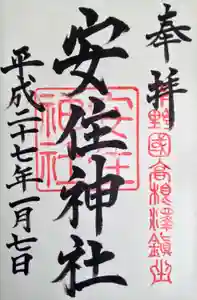 奉拝
下野國高根澤鎮座
安住神社
安住神社
平成二十七年一月七日